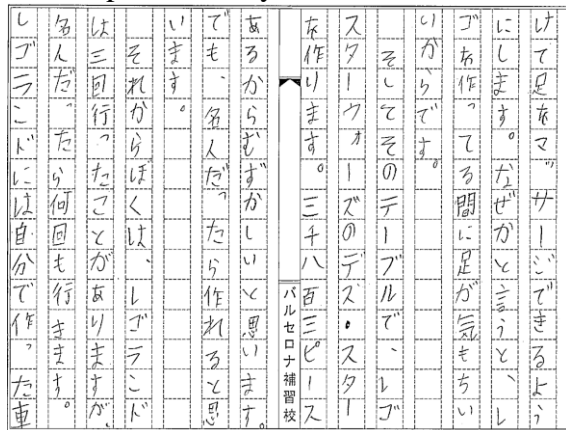 けて足をマッサージできるよう
にします。なぜかと言うと、レ
ゴを作ってる間に足が気もちい
いからです。
そしてそのテーブルで、レゴ
スターウォーズのデス・スター
を作ります。三千八百三ピース
バルセロナ補習校
あるからむずかしいと思います。
でも、名人だったら作れると思
います。
それからぼくは、レゴランド
は三回行ったことがありますが、
名人だったら何回も行きます。
レゴランドには自分で作った車